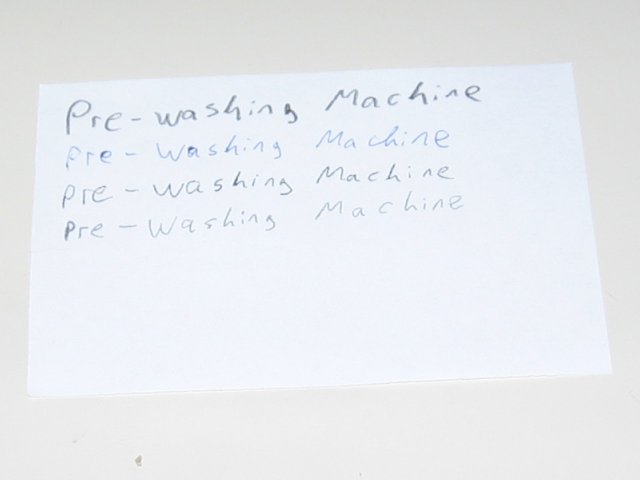 Pre-washing Machine
Pre-Washing Machine
Pre-washing Machine
Pre-Washing Machine